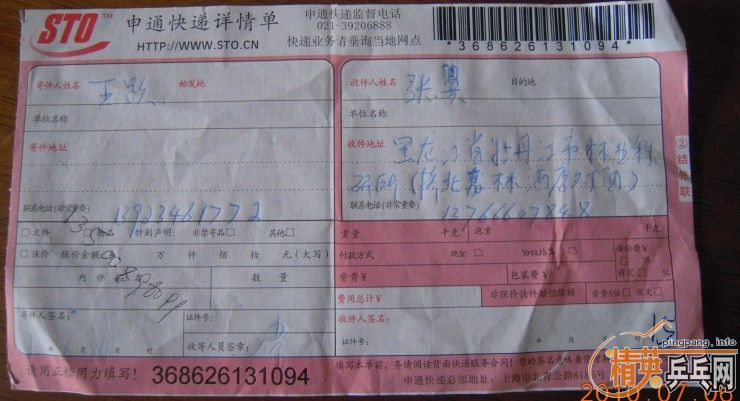 STO™
申通快递详情单
HTTP://WWW.STO.CN
申通快递监督电话
021-39206888
快递业务请垂询当地网点
*368626131094*
寄件人姓名 王 始发地
单位名称
寄件地址
联系电话(非常重要)
13923461772
收件人姓名 张 目的地
单位名称
收件地址 黑龙江省牡丹江市林业科
研所
联系电话(非常重要)
②结帐联
文件 物品 特别声明: 非禁寄品 其他
保价 保价金额 万 仟 佰 拾 元(大写)
内件 数量
寄件人签名:
证件号:
收寄人员签章:
年 月
重量 千克 千克
付款方式 现金 协议结算
资费¥ 包装费¥
保价费¥
%
商定
费用总计¥
非保价快件赔偿限额 资费5倍 商定
收件人签名:
证件号:
年 月
请用正楷用力填写!
368626131094
填写本单前,务请阅读背面快递服务合同!您的签名意味着您
申通快递总部地址:上海市北青公路6186号
pingpang.info
精英乒乓网
2010.07.06